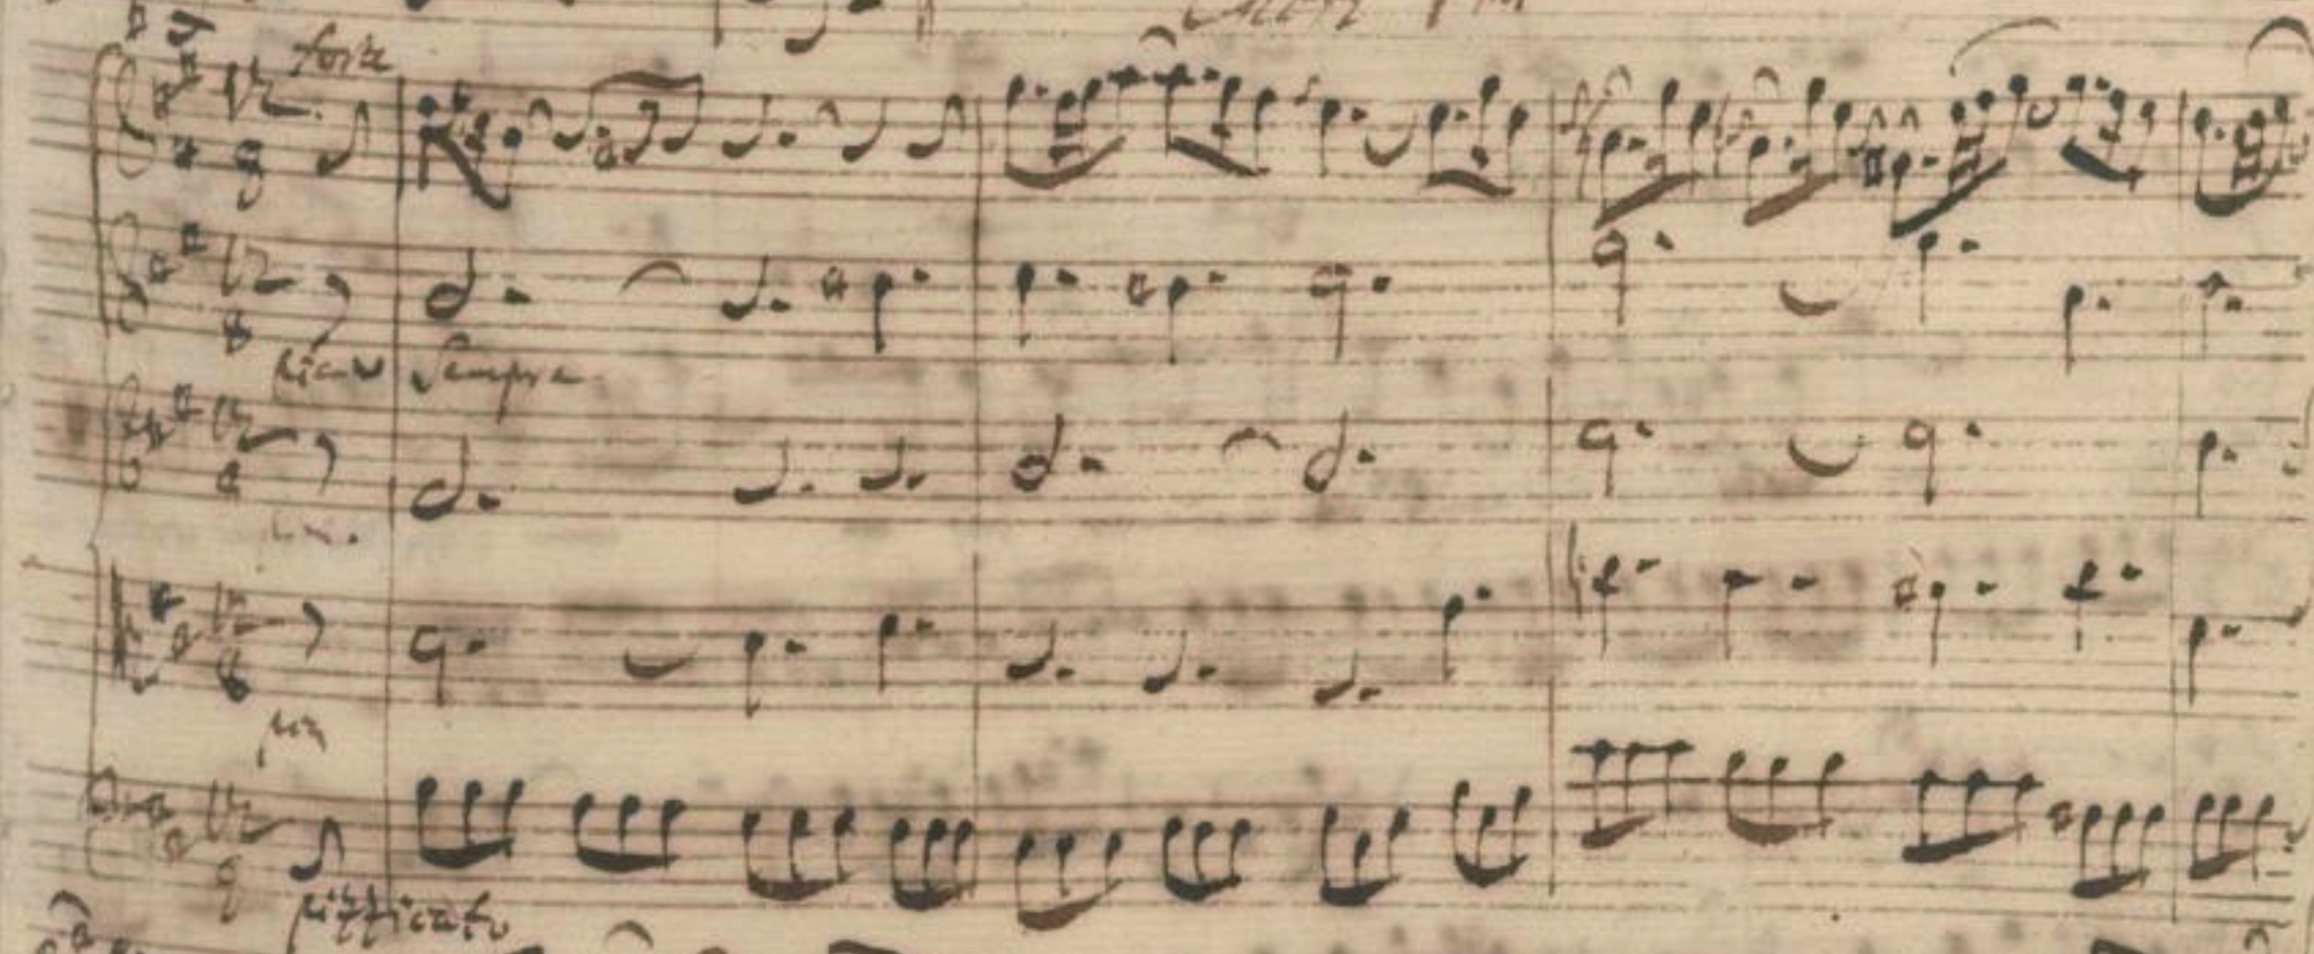 forte
piano Sempre
pia.
pia
pizzicato